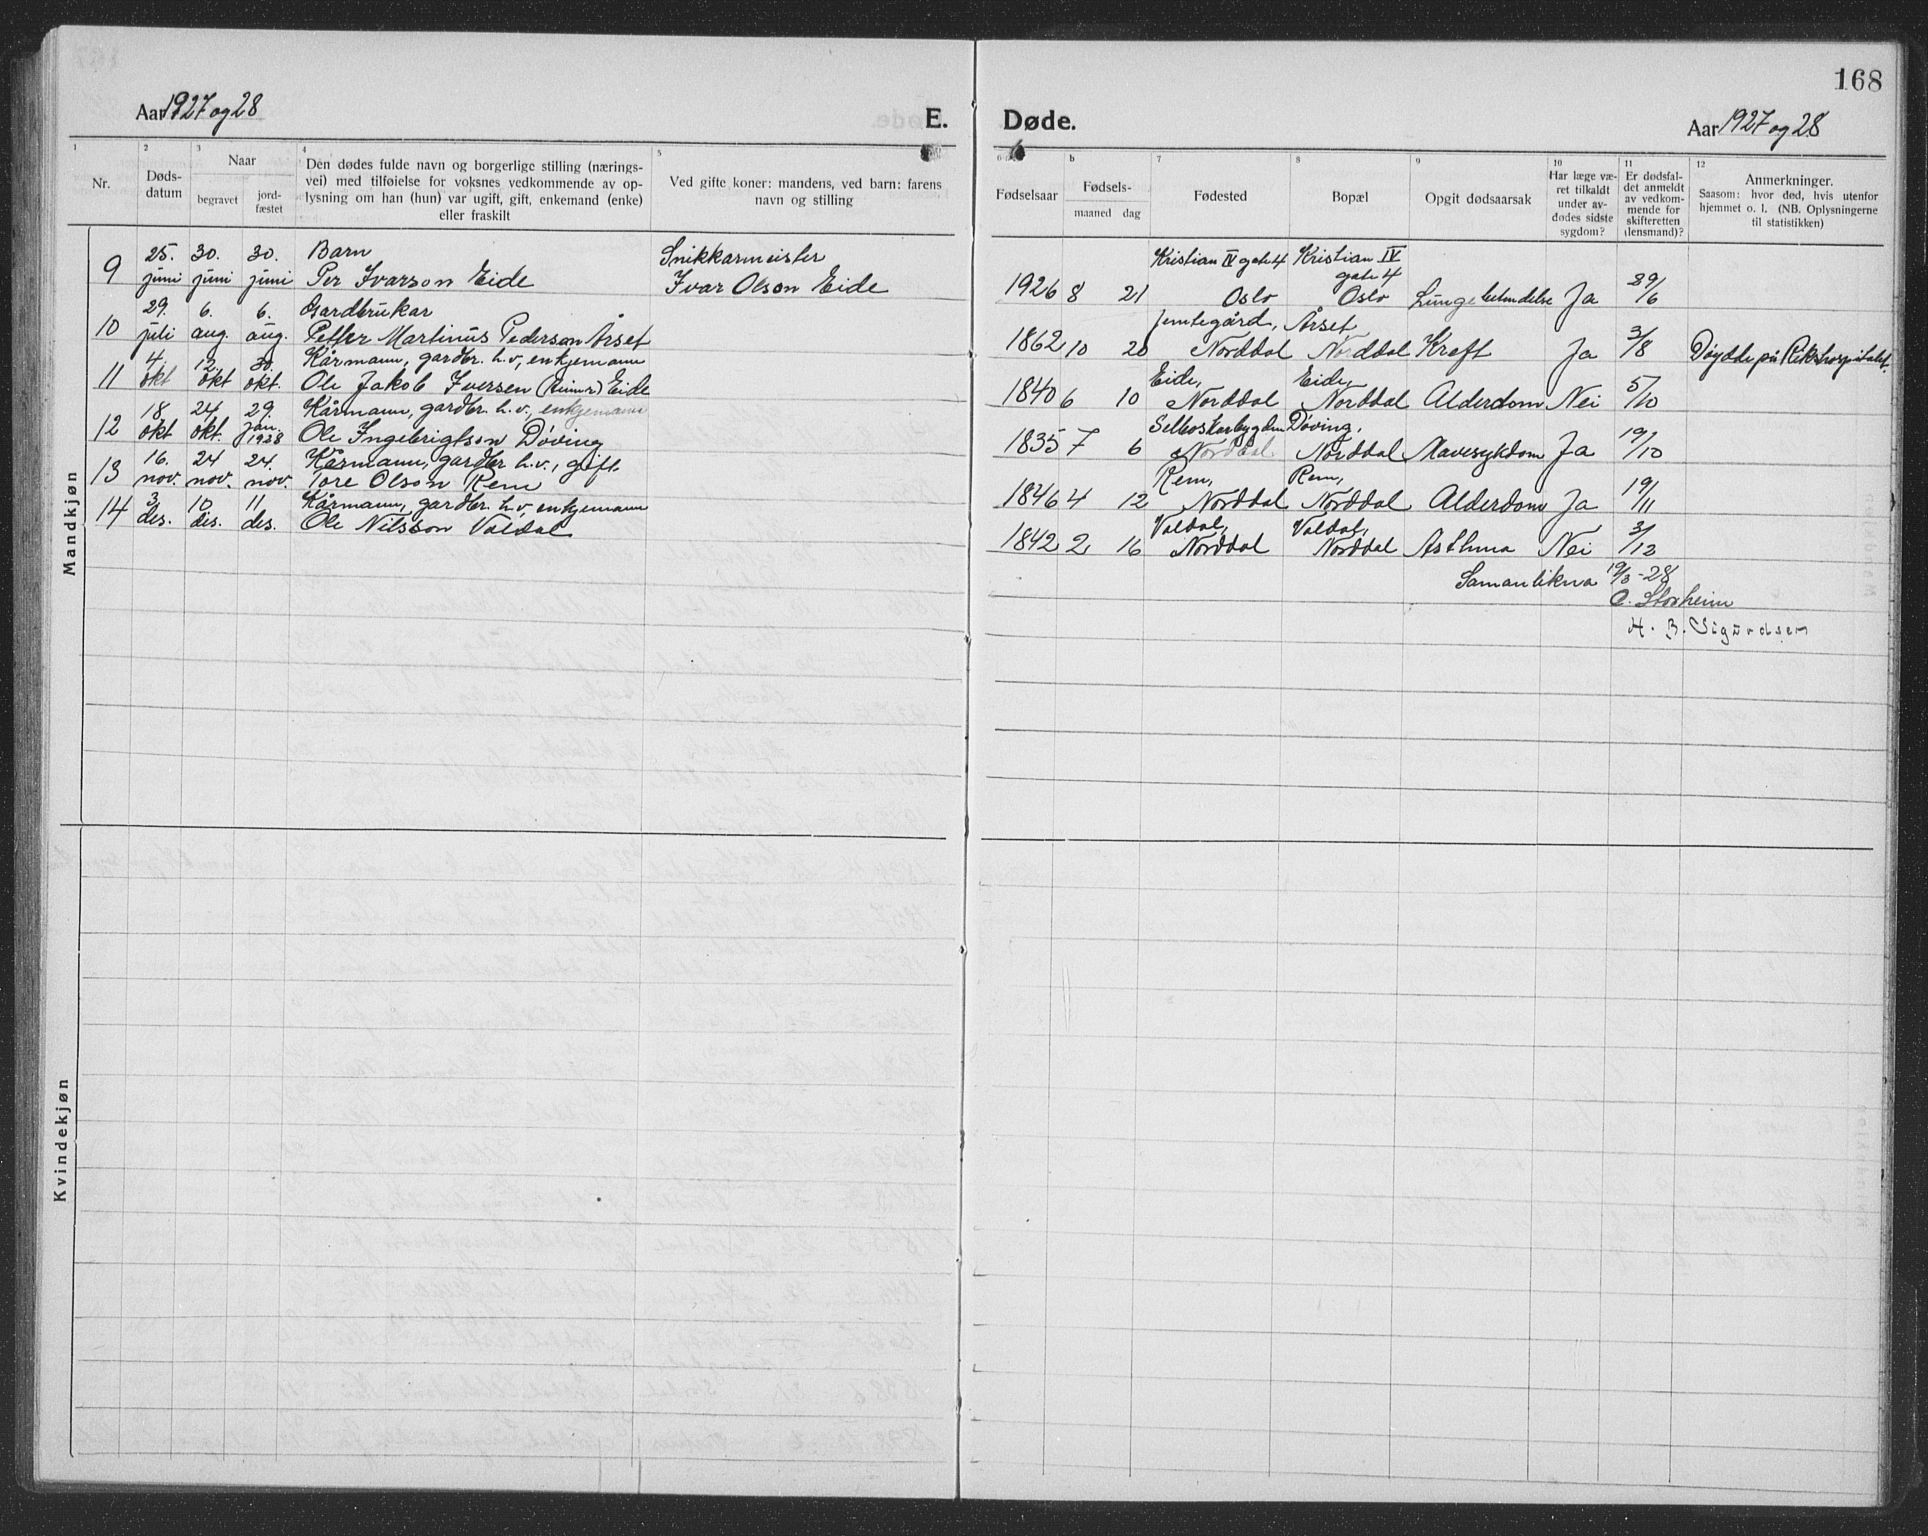 168
Aar 1927 og 28
E.
Døde.
Aar 1927 og 28
1
2
3
4
5
Nr.
Døds-
datum
Naar
begravet
jord-
fæstet
Den dødes fulde navn og borgerlige stilling (nærings-
vei) med tilføielse for voksnes vedkommende av op-
lysning om han (hun) var ugift, gift, enkemand (enke)
eller fraskilt
Ved gifte koner: mandens, ved barn: farens
navn og stilling
b
7
8
9
10
11
12
Fødselsaar
Fødsels-
maaned dag
Fødested
Bopæl
Opgit dødsaarsak
Har læge væ-
ret tilkaldt
under av-
dødes sidste
sygdom?
Er dødsfal-
det anmeldt
av vedkom-
mende for
skifteretten
(lensmand)?
Anmerkninger.
Saasom: hvor død, hvis utenfor
hjemmet o. l. (NB. Oplysningerne
til statistikken)
Mandkjøn
25. 30. 30. Barn Snikkarmeister
9 juni juni juni Per Ivarson Eide Ivar Olson Eide
Kristian IV gate 4 Kristian IV
gate 4
1926 8 21 Oslo Oslo Lungebetendelse Ja 29/6
29. 6. 6. Gardbrukar
10 juli aug. aug. Petter Martinus Pederson Årset
Årset
1862 10 20 Norddal Norddal Kreft Ja 3/8 Døydde på Rikshospitalet.
4. 12. 30. Kårmann, gardbr. h.v., enkjemann
11 okt okt okt. Ole Jakob Iversen Eide
Eide, Eide,
1840 6 10 Norddal Norddal Alderdom Nei 5/10
18 24 29. Kårmann, gardbr. h.v., enkjemann
12 okt okt. jan. 1928 Ole Ingebrigtson Døving
Døving,
1835 7 6 Norddal Norddal Mavesykdom Ja 19/10
16. 24 24. Kårmann, gardbr. h.v., gift
13 nov. nov. nov. Tore Olson Rem
Rem, Rem,
1846 4 12 Norddal Norddal Alderdom Ja 19/11
3 10 11 Kårmann, gardbr. h.v., enkjemann
14 des. des. des. Ole Nilsson Valdal
Valdal, Valdal,
1842 2 16 Norddal Norddal Asthma Nei 3/12
Samanlikna 19/3-28
O. Storheim
H. B. Sigurdsen
Kvindekjøn